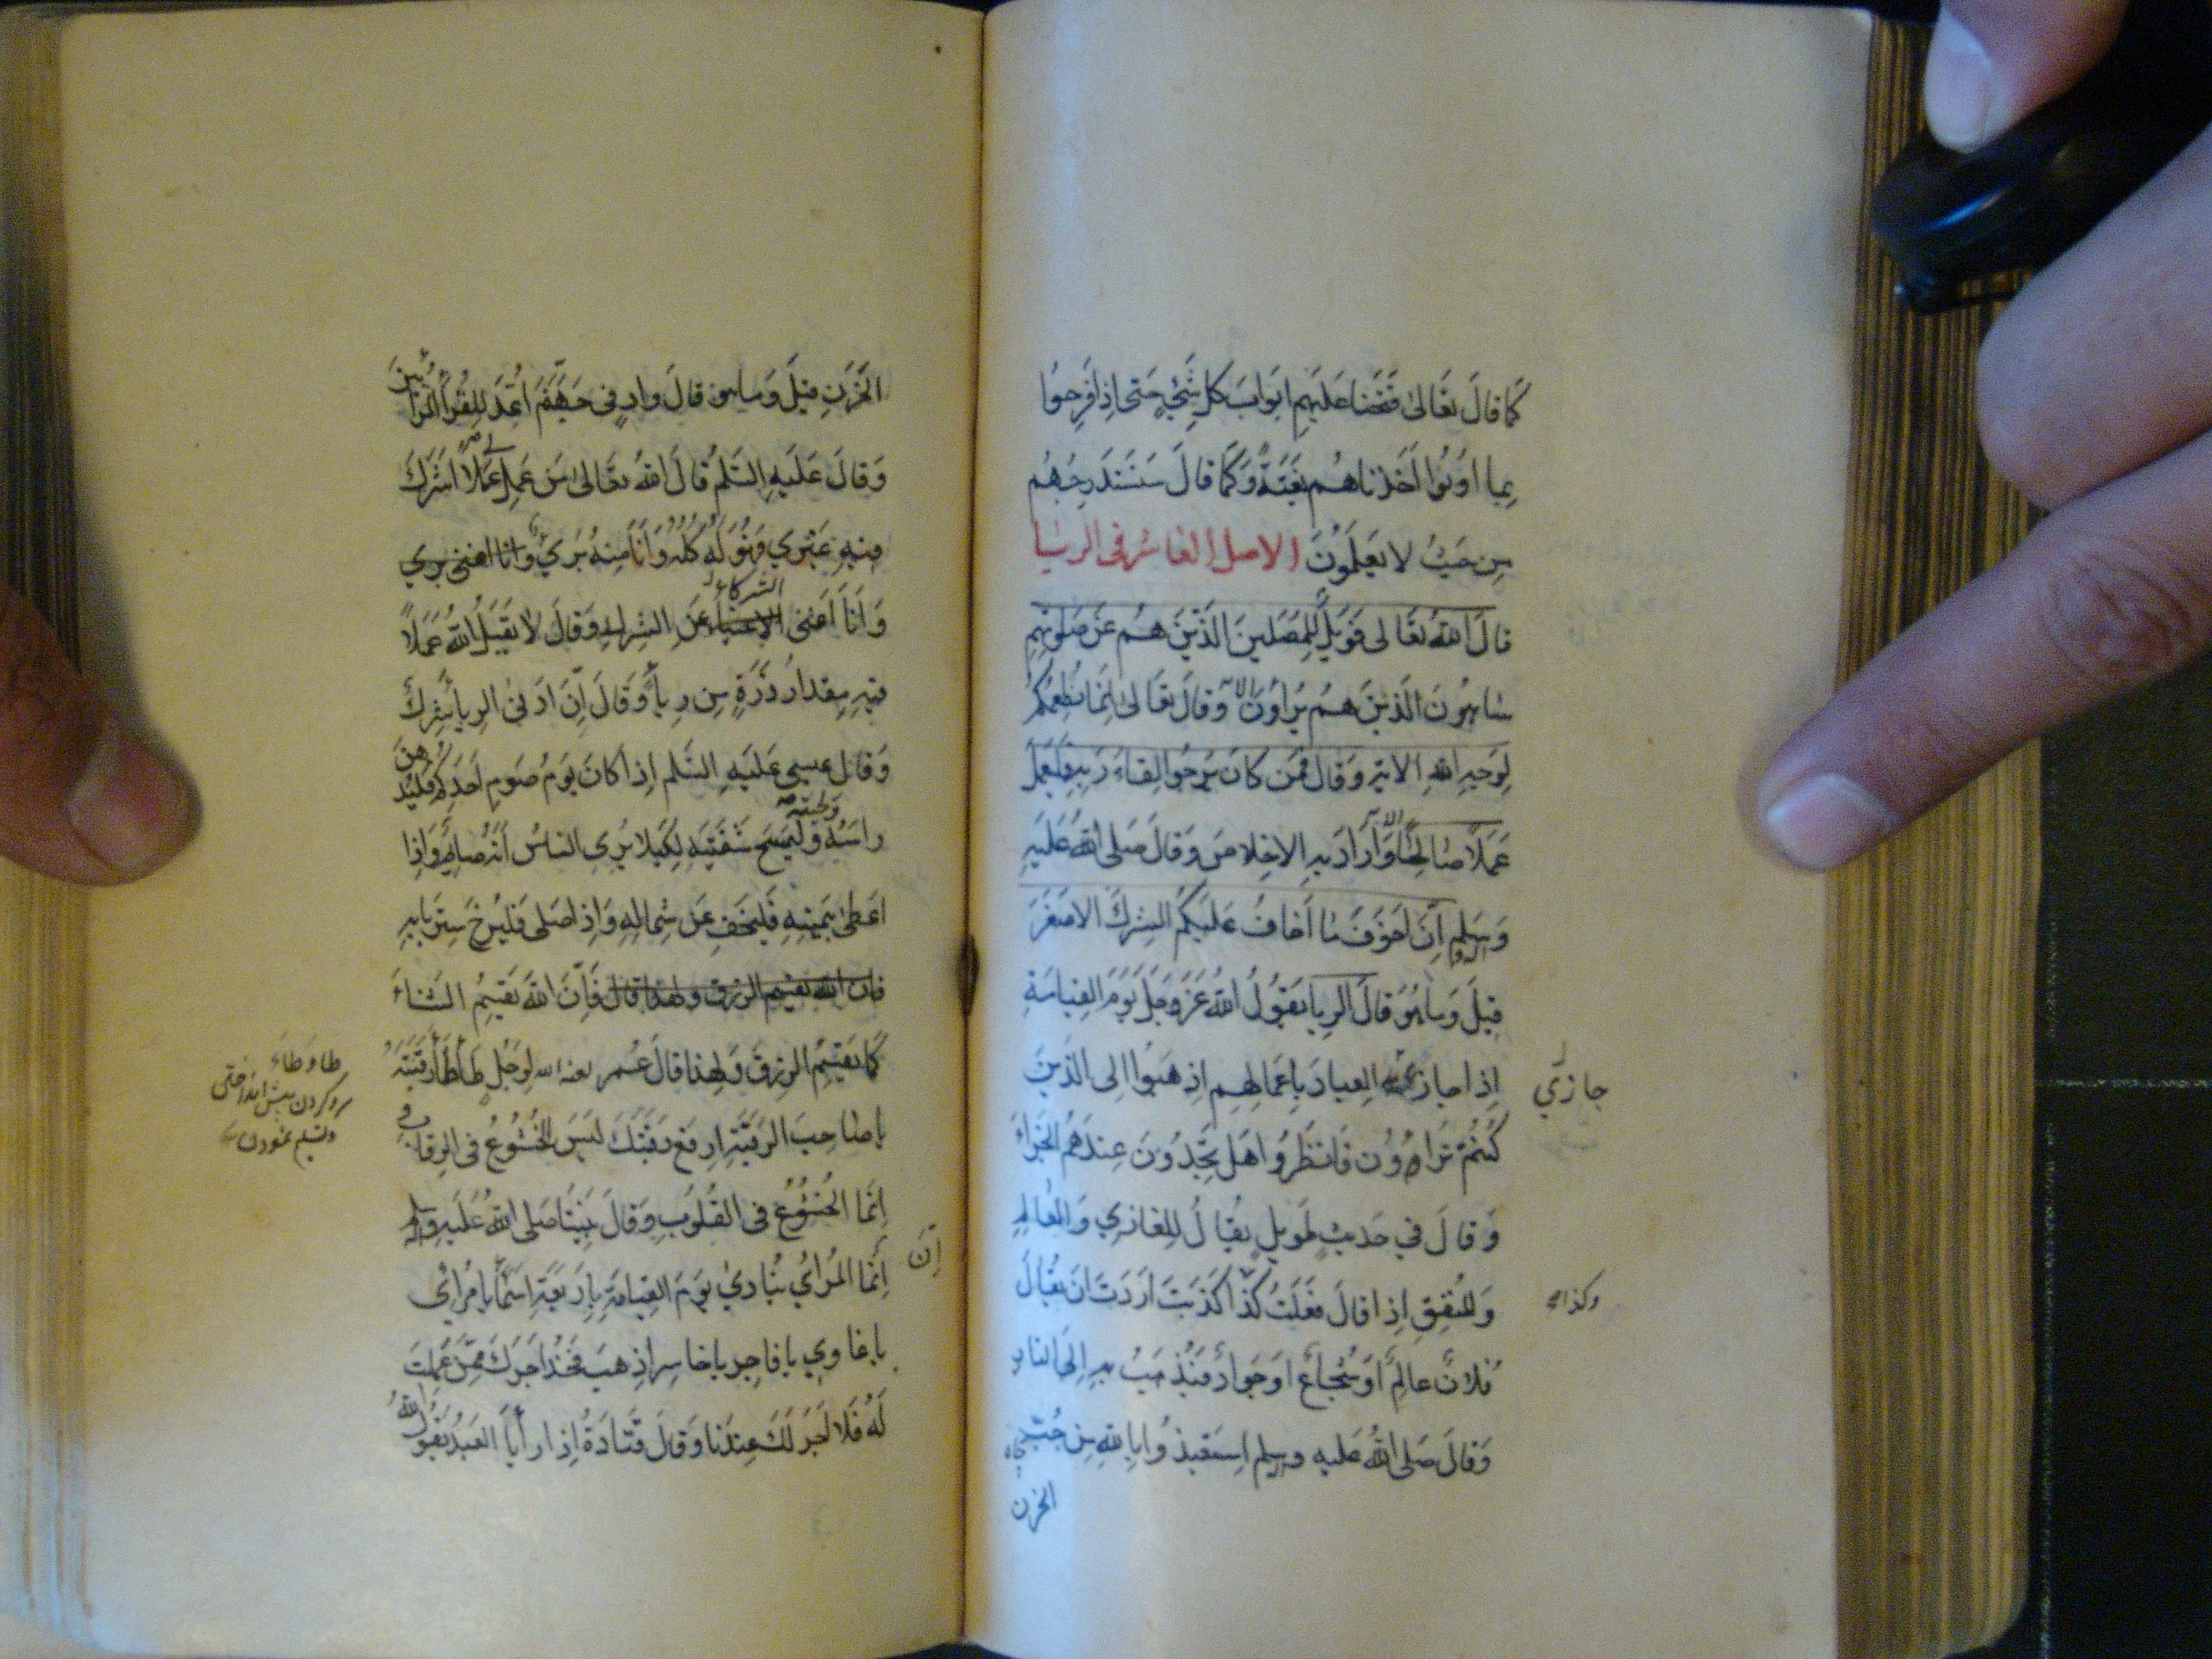 كما قال تعالى فتحنا عليهم ابواب كل شيء حتى اذا فرحوا
بما اوتوا اخذناهم بغتة وكما قال سنستدرجهم
من حيث لا يعلمون الاصل العاشر فى الريا
قال الله تعالى فويل للمصلين الذين هم عن صلوتهم
ساهون الذين هم يراؤن وقال تعالى انما نطعمكم
لوجه الله الاية وقال فمن كان يرجوا لقاء ربه فليعمل
عملا صالحا واراد به الاخلاص وقال صلى الله عليه
وسلم ان اخوف ما اخاف عليكم الشرك الاصغر
قيل وما هو قال الريا يقول الله عز وجل يوم القيامة
اذا جاز العباد باعمالهم اذهبوا الى الذين
جازي
كنتم تراؤن فانظروا هل تجدون عندهم الجزاء
وقال في حديث طويل يقال للغازي والعالم
والمنفق اذا قال فعلت كذا كذبت اردت ان يقال
وكذا
فلان عالم او شجاع او جواد فيذهب به الى النار
وقال صلى الله عليه وسلم استعيذوا بالله من جب
الحزن
الحزن قيل وما هو قال واد فى جهنم اعد للقراء المرائين
وقال عليه السلم قال الله تعالى من عمل لى عملا اشرك
فيه غيري فهو له كله وانا منه بري وانا اغنى بري
الشركاء
وانا اغنى الاغنياء عن الشرك وقال لا يقبل الله عملا
فيه مقدار ذرة من رياء وقال ان ادنى الريا شرك
وقال عيسى عليه السلم اذا كان يوم صوم احدكم فليدهن
ولحيته
راسه وليمسح شفتيه لكيلا يرى الناس انه صايم واذا
اعطى بيمينه فليخف عن شماله واذا صلى فليرخ ستر بابه
فان الله يقسم الرزق ولهذا قال فان الله يقسم الثناء
كما يقسم الرزق ولهذا قال عمر لرجل طأطأ رقبته
يا صاحب الرقبة ارفع رقبتك ليس الخشوع فى الرقاب
انما الخشوع فى القلوب وقال نبينا صلى الله عليه وسلم
ان
انما المرائي ينادي يوم القيامة باربعة اسماء يا مرائي
يا غاوي يا فاجر يا خاسر اذهب فخذ اجرك ممن عملت
له فلا اجر لك عندنا وقال قتادة اذا رأيا العبد يقول الله